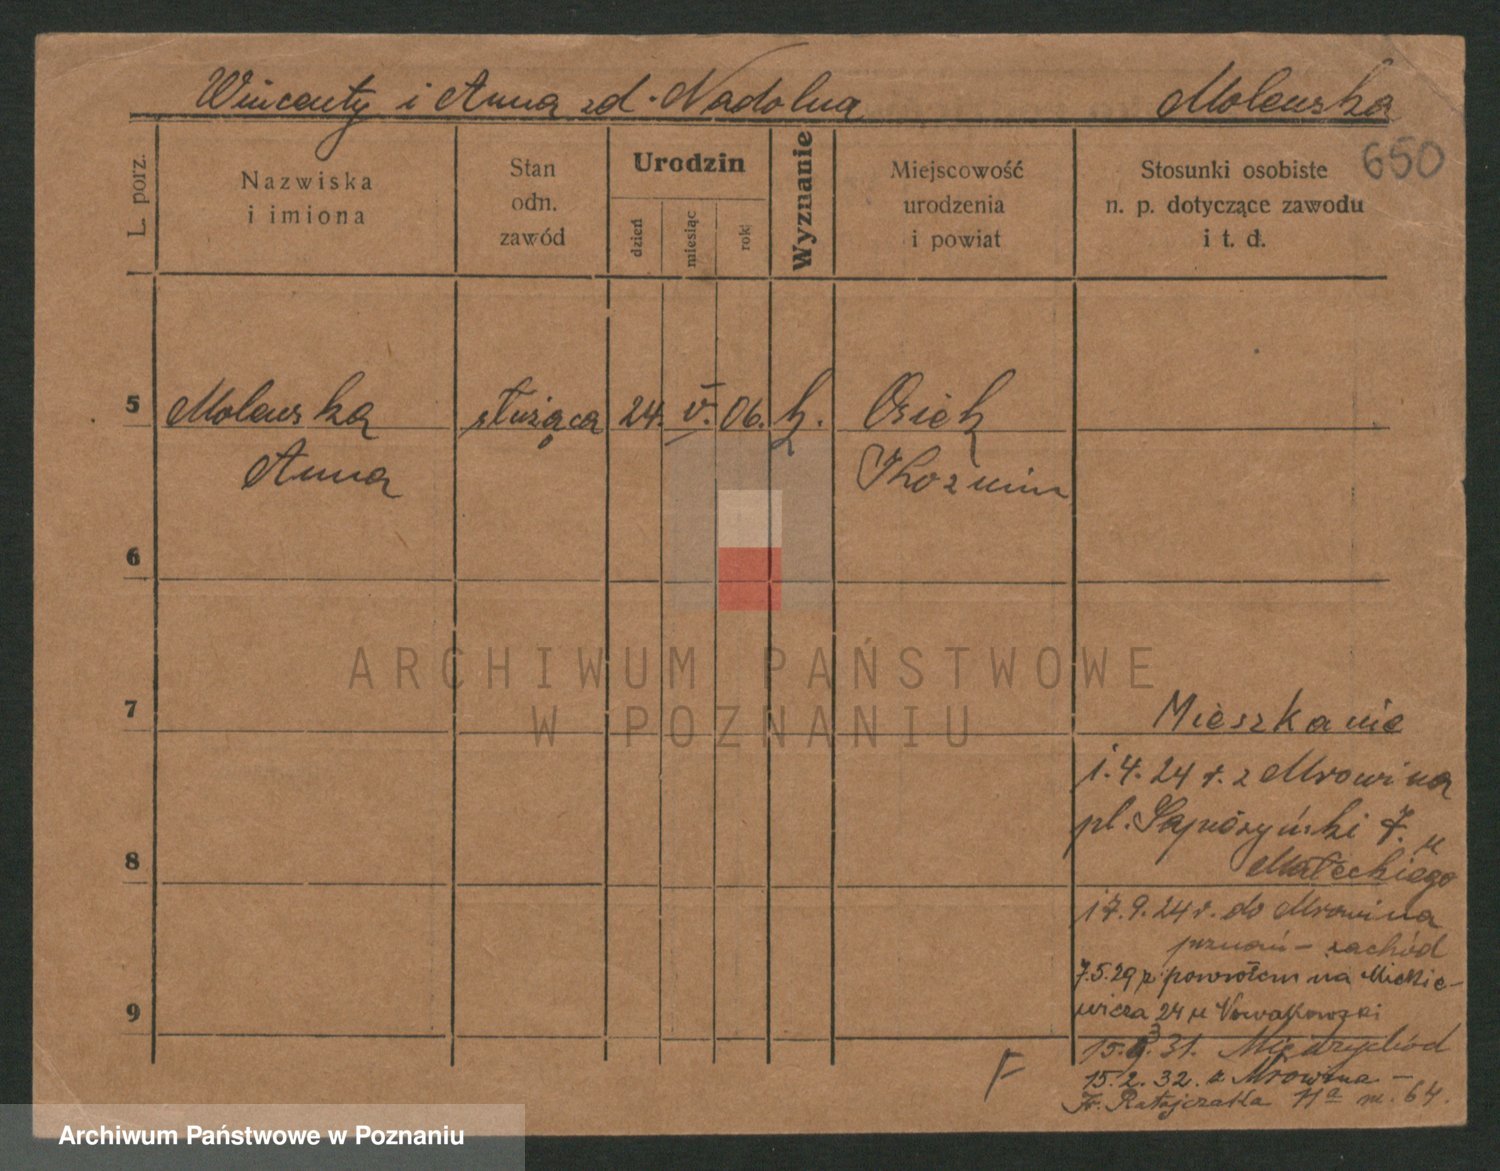 Wincenty i Anna zd. Nadolna Molenska
650
L. porz.
Nazwiska
i imiona
Stan
odn.
zawód
Urodzin
dzień
miesiąc
rok
Wyznanie
Miejscowość
urodzenia
i powiat
Stosunki osobiste
n. p. dotyczące zawodu
i t. d.
5 Molenska służąca 24. V. 06. k. Osiek
Anna Koźmin
6
ARCHIWUM PAŃSTWOWE
W POZNANIU
7 Mieszkanie
1.4.24 r. z Mrowina
pl. Sapieżyński 7. u
8 Małeckiego
17.9.24 r. do Mrowina
poznań - zachód
7.5.29 z powrotem na Mickie-
9 wicza 24 u Nowakowski
15.3.31. Międzychód
15.2.32. z Mrowina -
Fr. Ratajczaka 11a m. 64.
F
Archiwum Państwowe w Poznaniu